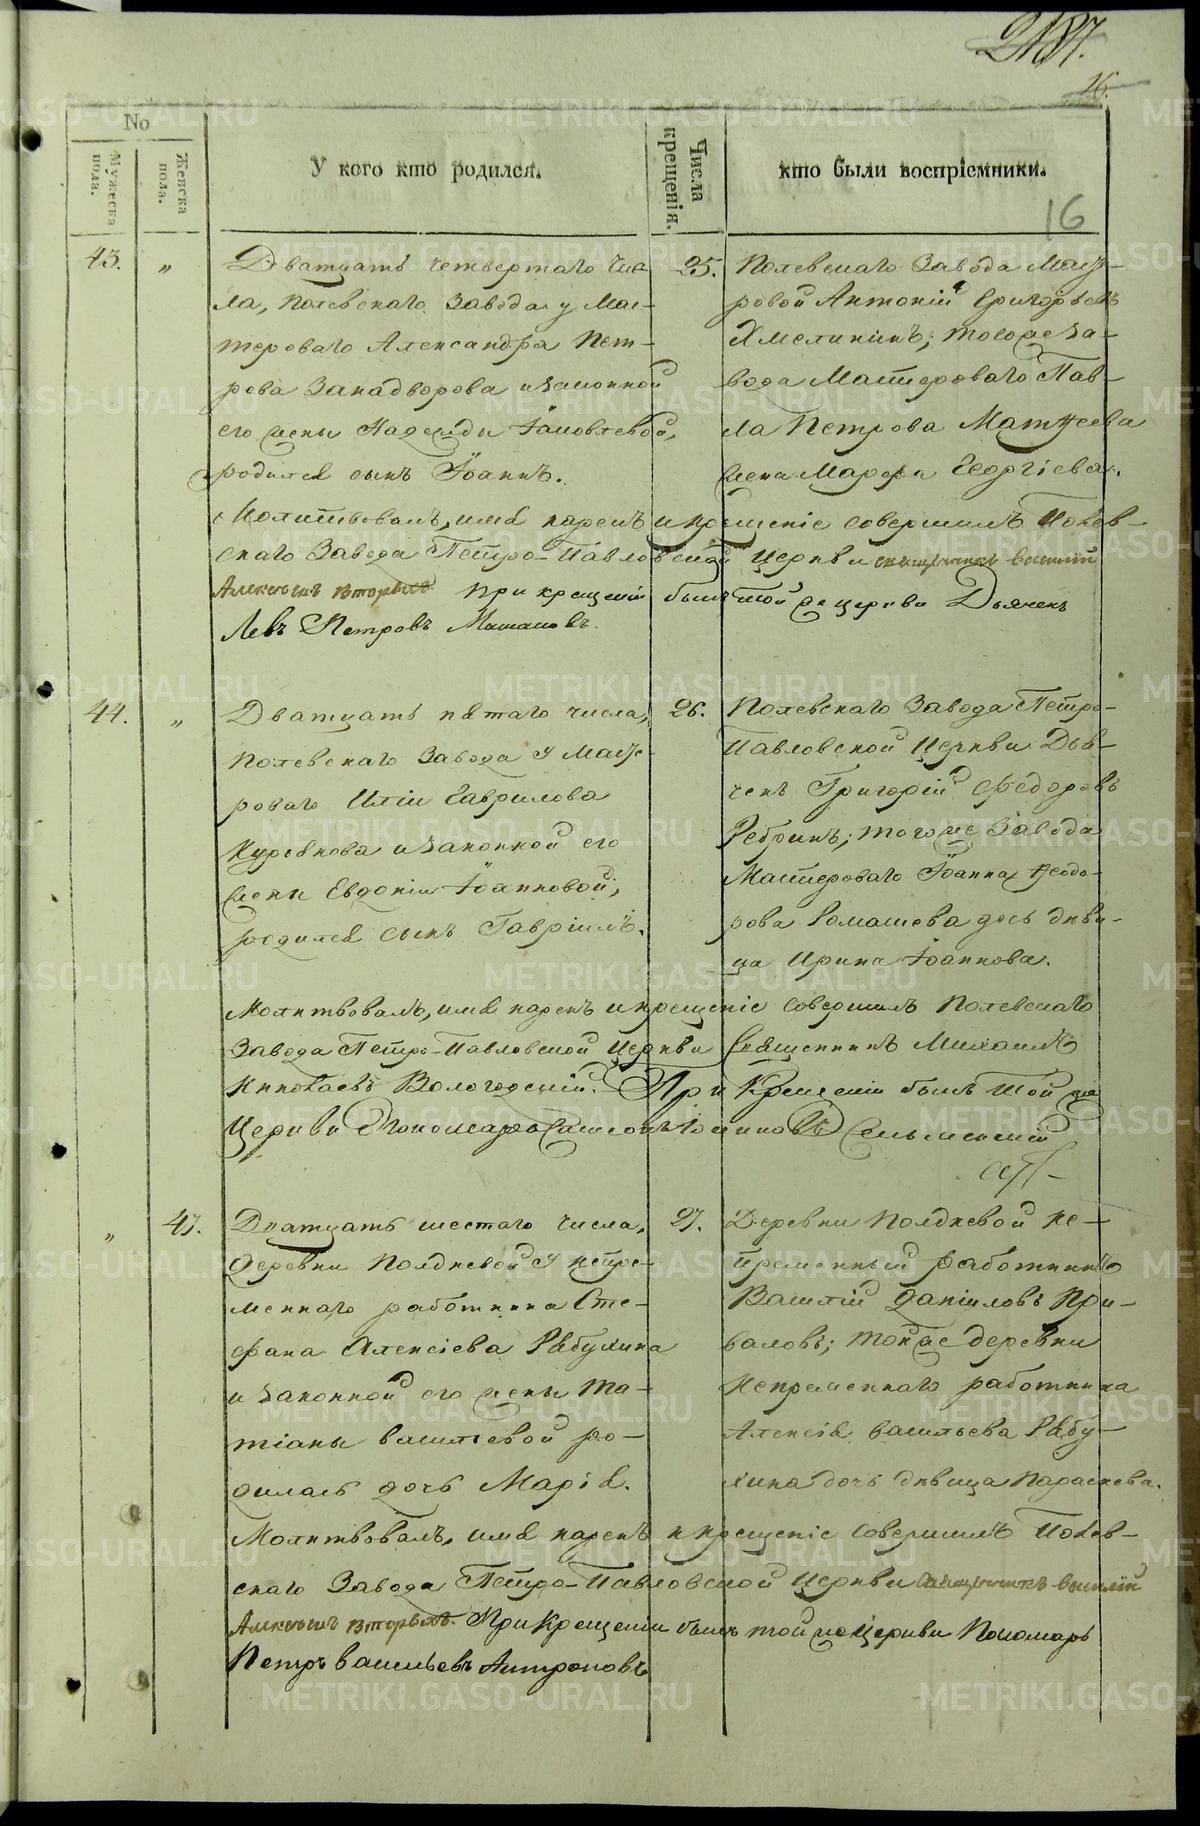 2187.
16.
No
Мужеска пола.
Женска пола.
У кого кто родился.
Числа крещенія.
кто были воспріемники.
16
43. „ Дватцать четвертаго чис-
ла, Полевскаго Завода у Мас-
тероваго Александра Пет-
рова Занадворова и законной
его жены Надежды Іаковлевой,
родился сынъ Іоаннъ.
25. Полевскаго Завода Масте-
ровой Антоній Григорьевъ
Хмелининъ; тогоже за-
вода Мастероваго Пав-
ла Петрова Матѳеева
жена Марѳа Георгіева.
Молитвовалъ, имя нарекъ и крещеніе совершилъ Полев-
скаго Завода Петро-Павловской Церкви священникъ Василій
Алексѣевъ Вторыхъ. При крещеніи былъ той же церкви Дьячекъ
Левъ Петровъ
44. „ Дватцать пятаго числа,
Полевскаго Завода у Масте-
роваго Иліи Гаврилова
и законной его
жены Евдокіи Іоанновой,
родился сынъ Гавріилъ.
26. Полевскаго Завода Петро-
Павловской Церкви Дья-
чекъ Григорій Федоровъ
Ребринъ; тогоже Завода
Мастероваго Іоанна Ѳеодо-
рова Ромашева дочь дѣви-
ца Ирина Іоаннова.
Молитвовалъ, имя нарекъ и крещеніе совершилъ Полевскаго
Завода Петро-Павловской Церкви Священникъ Михаилъ
Николаевъ Вологодскій. При Крещеніи былъ той же
Церкви Пономарь
„ 47. Дватцать шестаго числа,
Деревни Полдневой у непре-
меннаго работника Сте-
фана Алексіева Рябухина
и законной его жены Та-
тіаны Васильевой ро-
дилась дочь Марія.
27. Деревни Полдневой не-
пременный работникъ
Василій Даніиловъ При-
валовъ; тойже деревни
Непременнаго работника
Алексія Васильева Рябу-
хина дочь дѣвица Параскева.
Молитвовалъ, имя нарекъ и крещеніе совершилъ Полев-
скаго Завода Петро-Павловской Церкви Священникъ Василій
Алексѣевъ Вторыхъ. При Крещеніи былъ той же Церкви Пономарь
Петръ Васильевъ Антроповъ